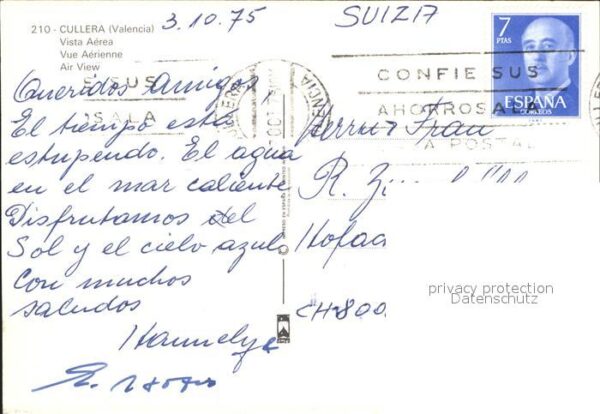 210 - CULLERA (Valencia)
Vista Aérea
Vue Aérienne
Air View
3.10.75
SUIZA
7
PTAS
ESPAÑA
CORREOS
CONFIE SUS
AHORROS A L
A POSTAL
E SUS
S A LA
VALENCIA
OCT
Queridos Amigos
El tiempo está
estupendo. El agua
en el mar caliente
Disfrutamos del
Sol y el cielo azul.
Con muchos
saludos
Herrn & Frau
R.
Hofac
CH-800
privacy protection
Datenschutz